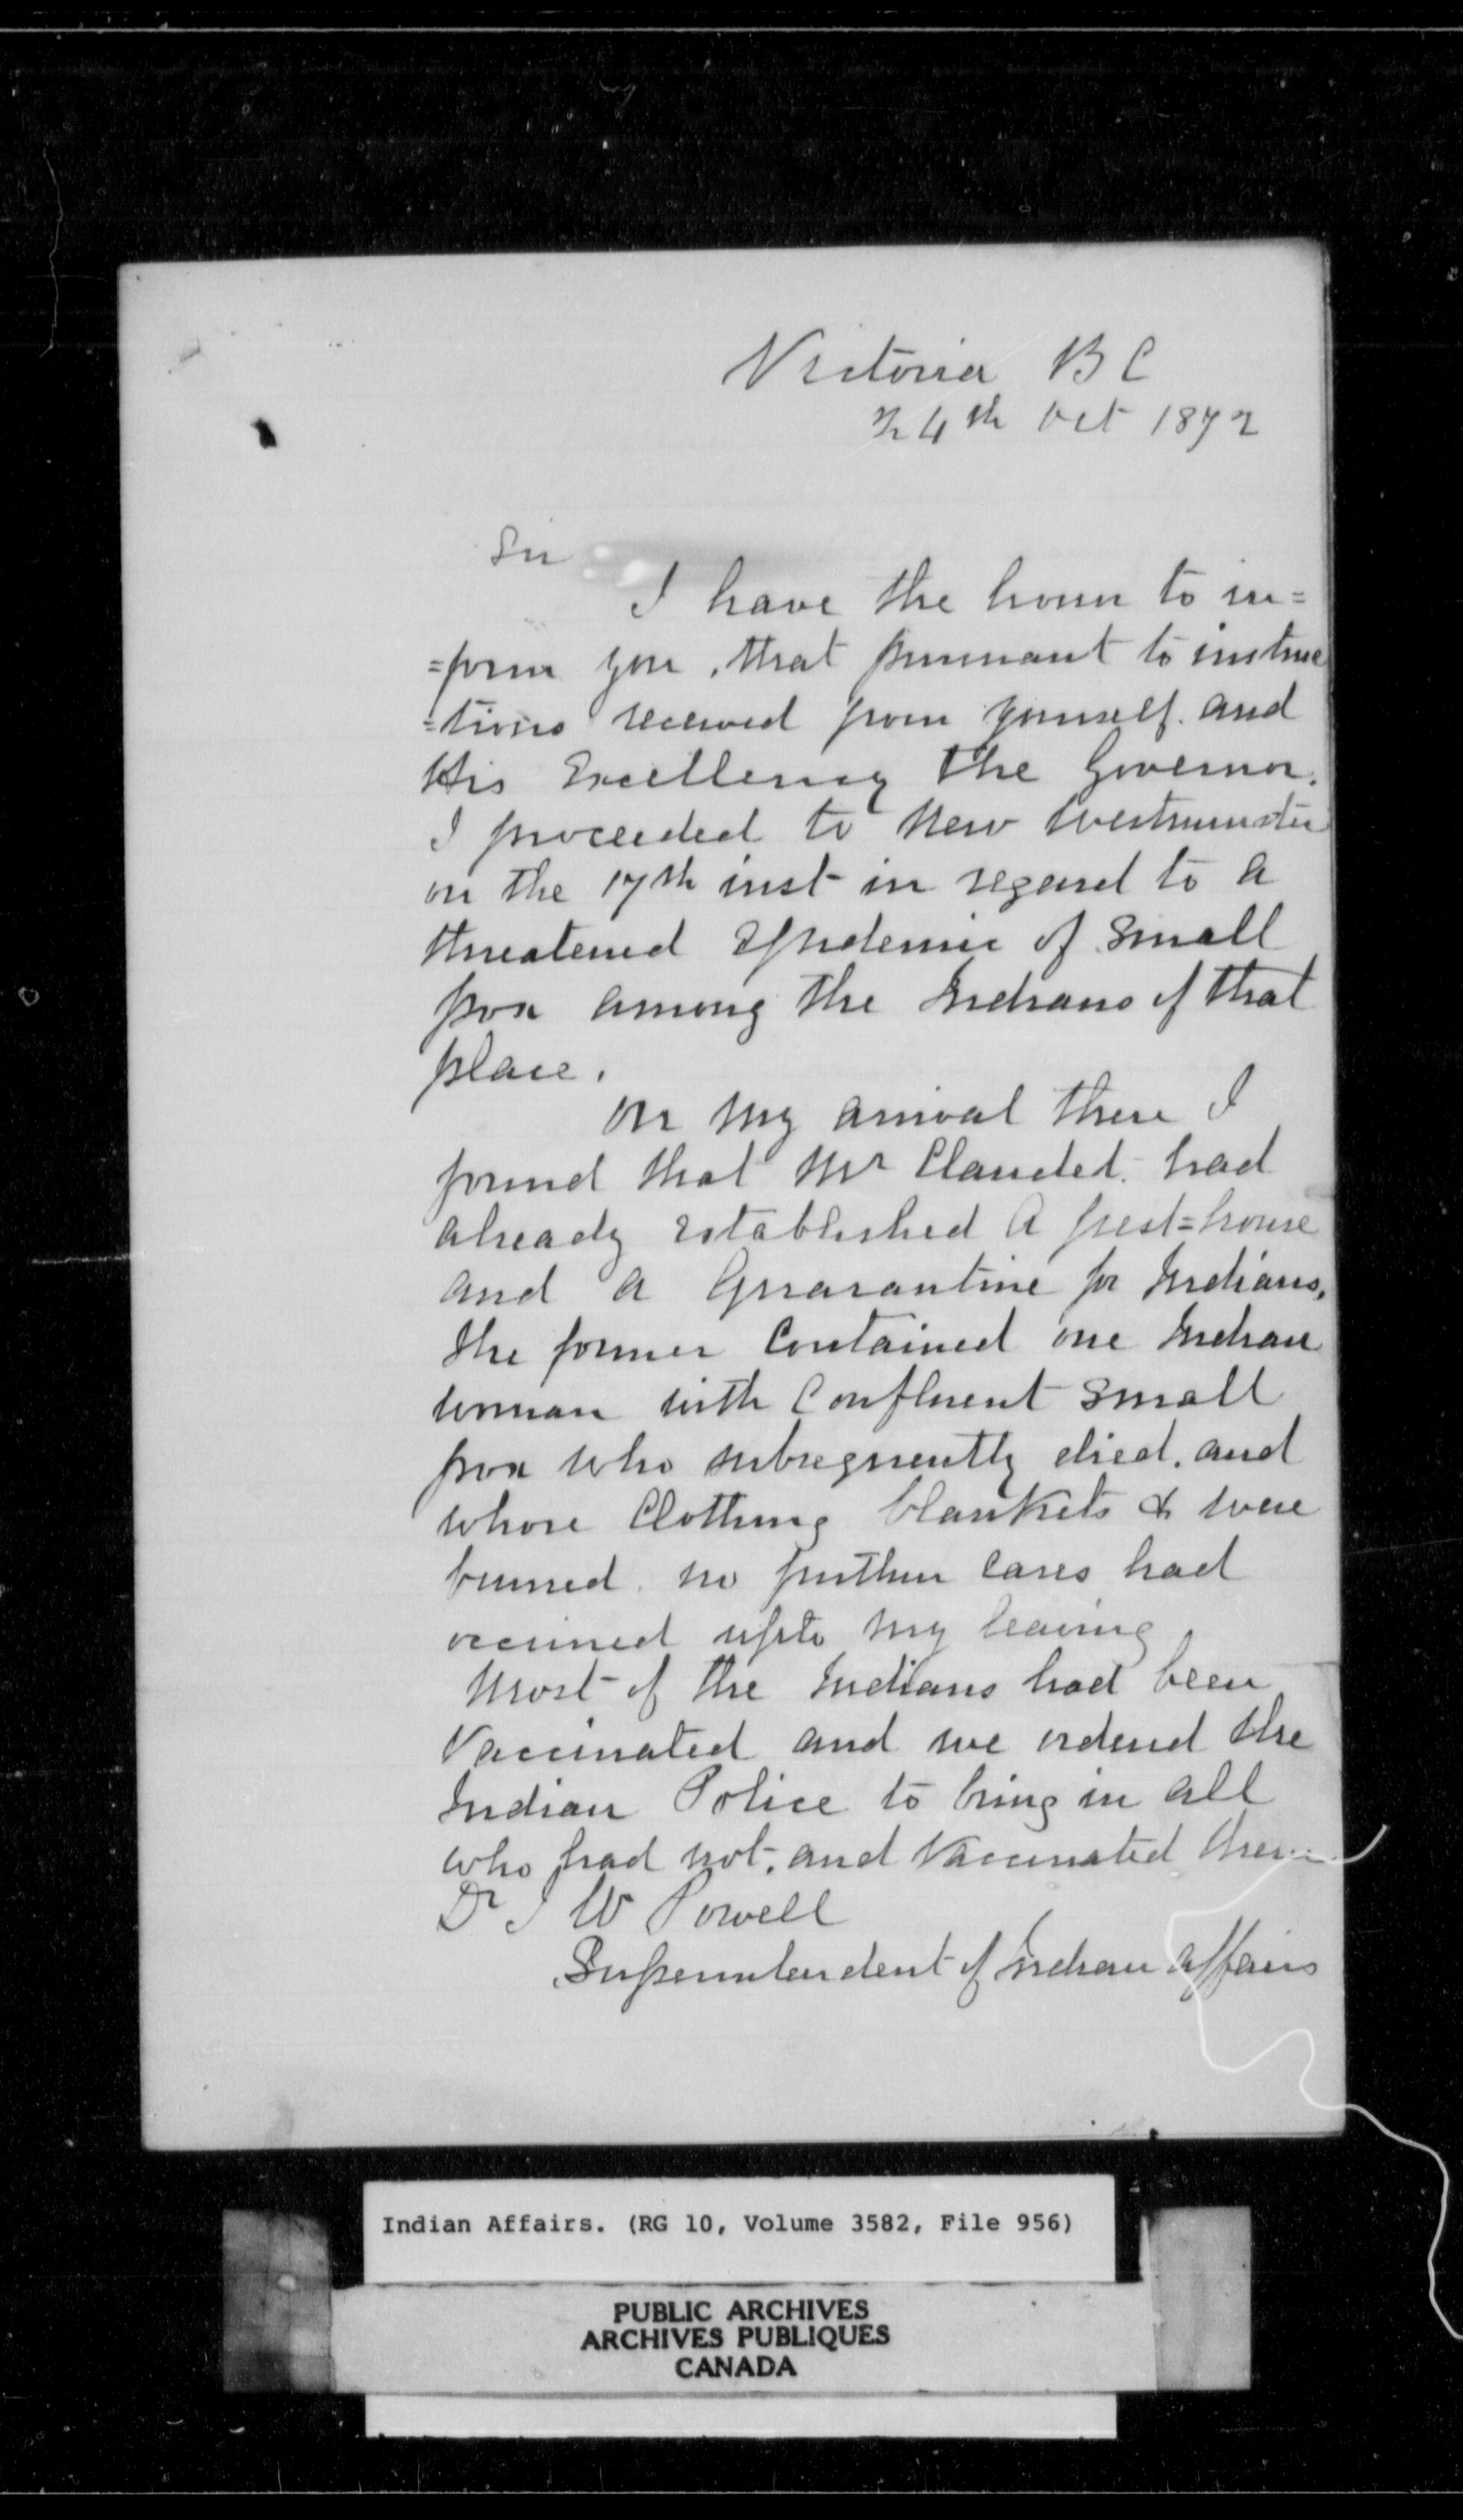 Victoria B C
24th Oct 1872
Sir
I have the honor to in=
=form you, that pursuant to instruc
=tions received from yourself. and
His Excellency the Governor.
I proceeded to New Westminster
on the 17th inst in regard to a
threatened Epidemic of Small
pox among the Indians of that
place.
On my arrival there I
found that Mr Claudet. had
already established a pest=house
and a Quarantine for Indians,
the former Contained one Indian
woman with Confluent Small
pox who subsequently died. and
whose Clothing blankets & were
burned. no further Cases had
occurred upto my leaving
Most of the Indians had been
Vaccinated and we ordered the
Indian Police to bring in all
who had not. and Vaccinated them
Dr I W Powell
Superintendent of Indian Affairs
Indian Affairs. (RG 10, Volume 3582, File 956)
PUBLIC ARCHIVES
ARCHIVES PUBLIQUES
CANADA